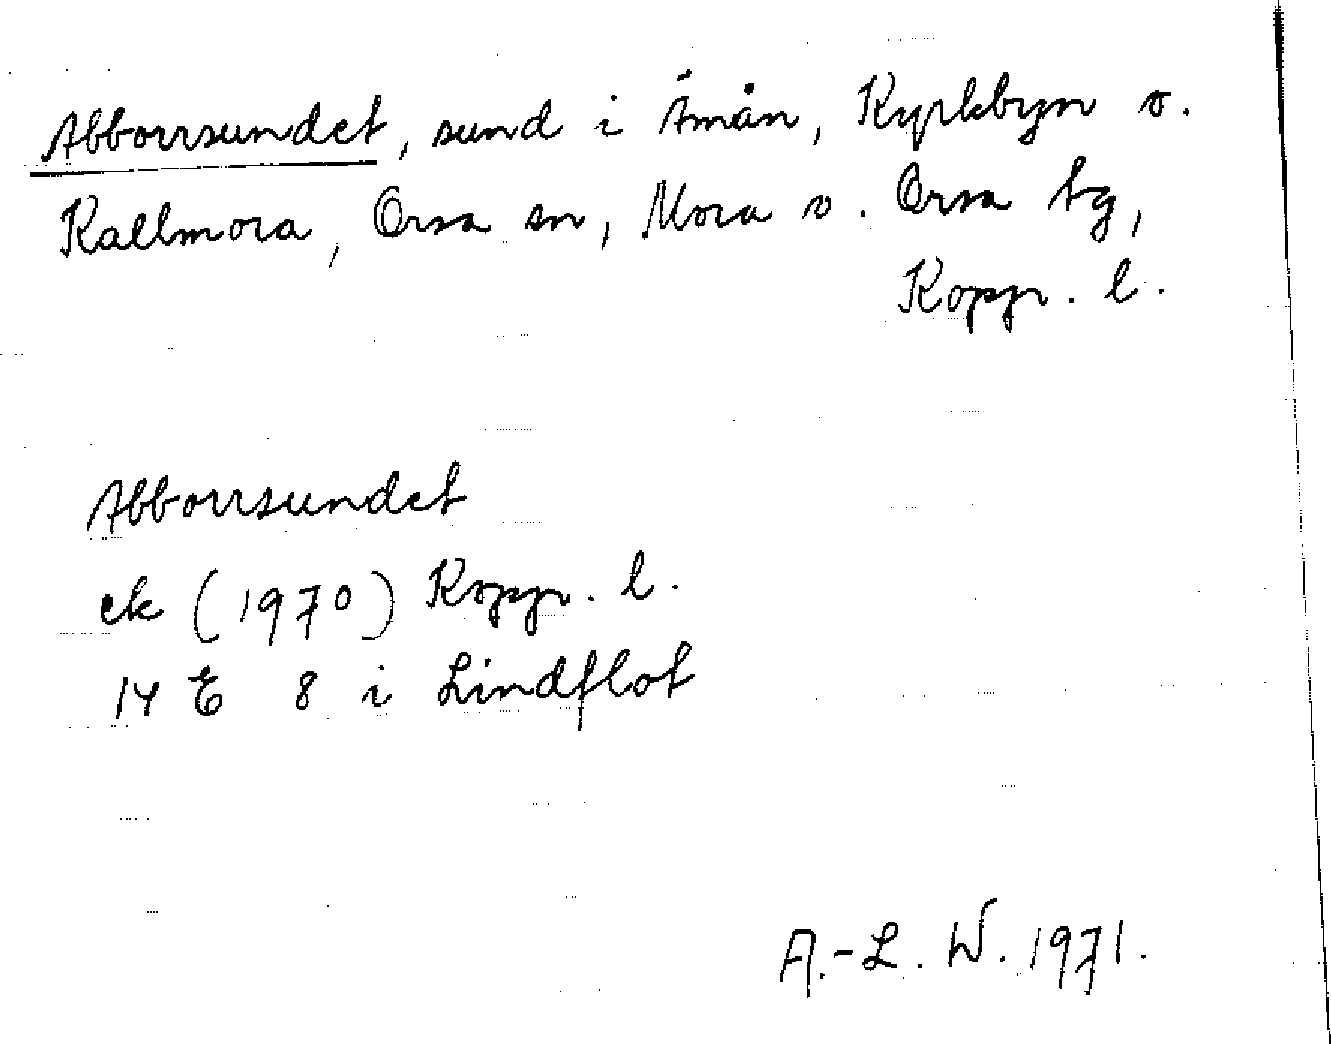 Abborrsundet, sund i Ämån, Kyrkbyn o.
Kallmora, Orsa sn, Mora o. Orsa tg,
Koppr. l.
Abborrsundet
ek (1970) Koppr. l.
14 E 8 i Lindflot
A.-L. W. 1971.